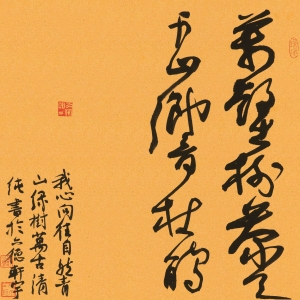 萬壑樹參天
千山響杜鵑
我心向往自然青
山綠樹萬古清
純書於德軒宇